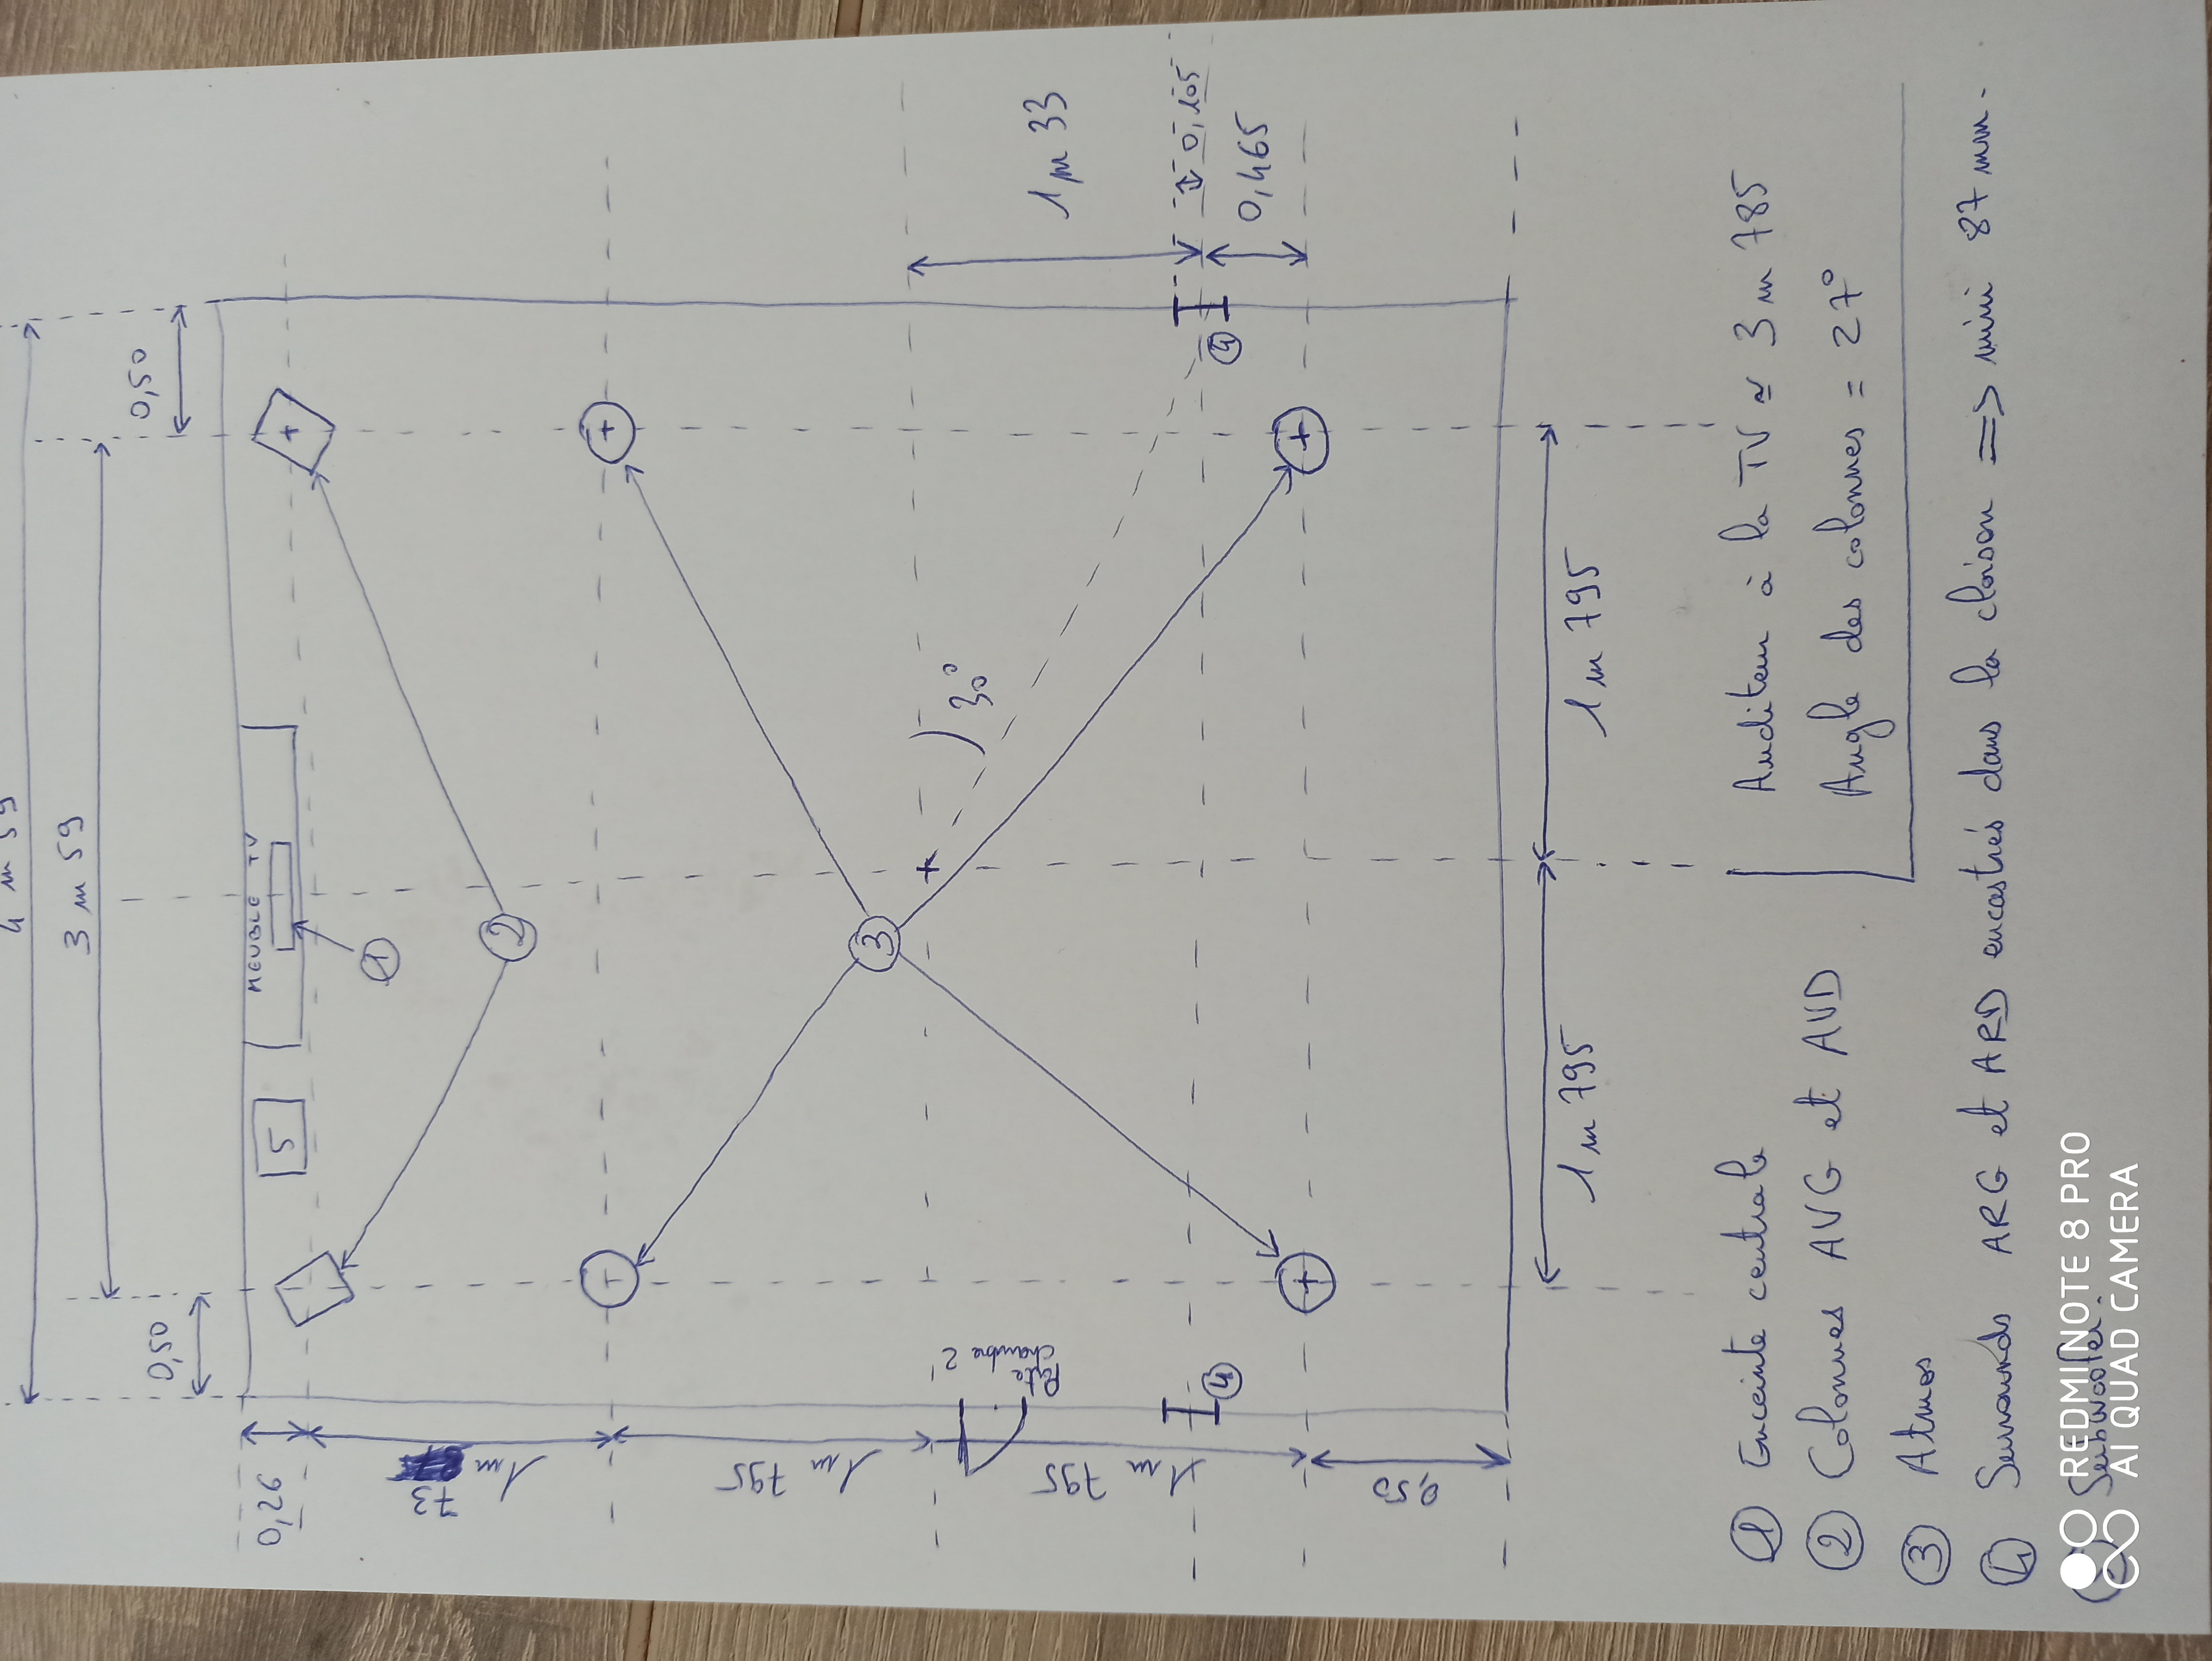 4 m 59
3 m 59
0,50
0,50
MEUBLE TV
5
1
2
3
30°
4
4
Porte
chambre 2
0,26
1m 73
1m 795
1m 795
0,50
1m 33
0,105
0,465
1m 795
1m 795
Auditeur à la TV ≃ 3m 785
Angle des colonnes = 27°
1 Enceinte centrale
2 Colonnes AVG et AVD
3 Atmos
4 Surrounds ARG et ARD encastrés dans la cloison => mini 87 mm.
Subwoofer
REDMI NOTE 8 PRO
AI QUAD CAMERA